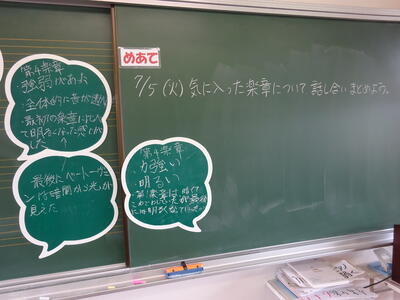 めあて
7/5 (火) 気に入った楽章について 話し合いまとめよう。
第4楽章
強弱がある
・全体的に音が
最初の楽章に比べ
て明るくなった感じがし
た
最後にベートーヴェ
ンは暗闇から光が
見えた
第4楽章
・力強い
・明るい